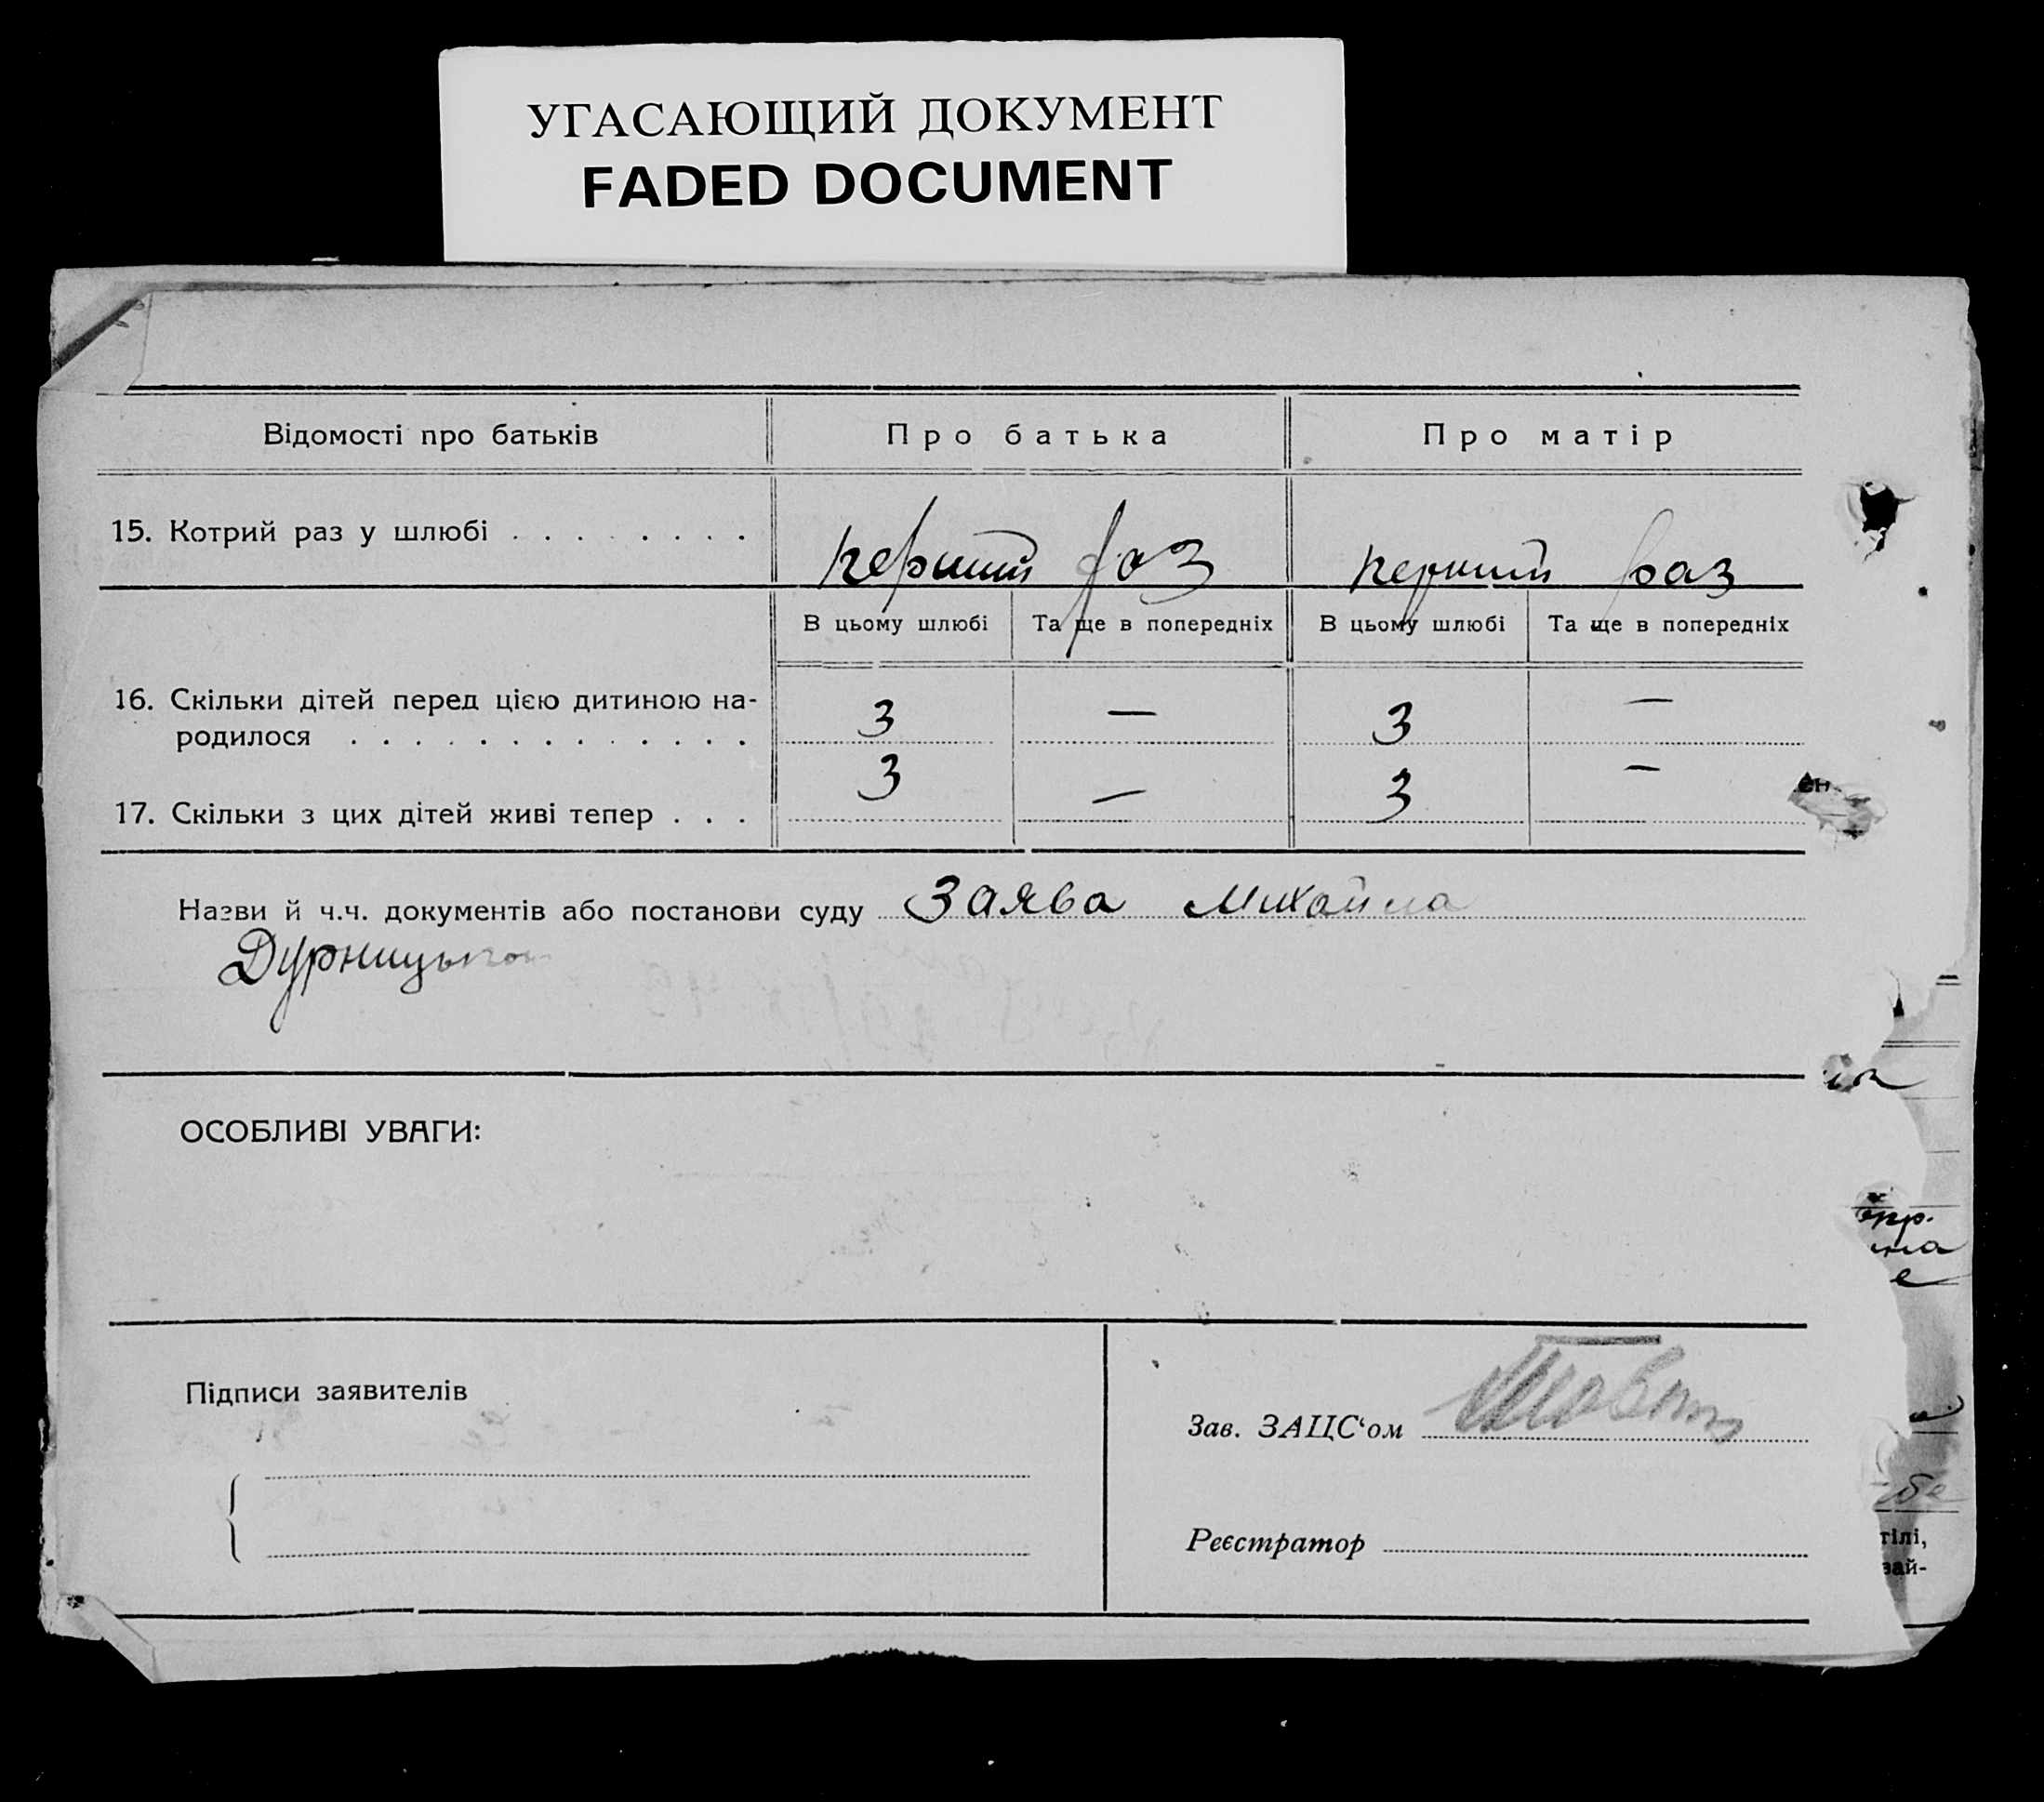 УГАСАЮЩИЙ ДОКУМЕНТ
FADED DOCUMENT
Відомості про батьків Про батька Про матір
15. Котрий раз у шлюбі . . . . . . . . перший раз перший раз
В цьому шлюбі Та ще в попередніх В цьому шлюбі Та ще в попередніх
16. Скільки дітей перед цією дитиною на-
родилося . . . . . . . . . . . . . 3 — 3 —
17. Скільки з цих дітей живі тепер . . . 3 — 3 —
Назви й ч.ч. документів або постанови суду Заява Михайла
Дурницького
ОСОБЛИВІ УВАГИ:
Підписи заявителів
Зав. ЗАЦС‘ом
Реєстратор
тілі,
зай-